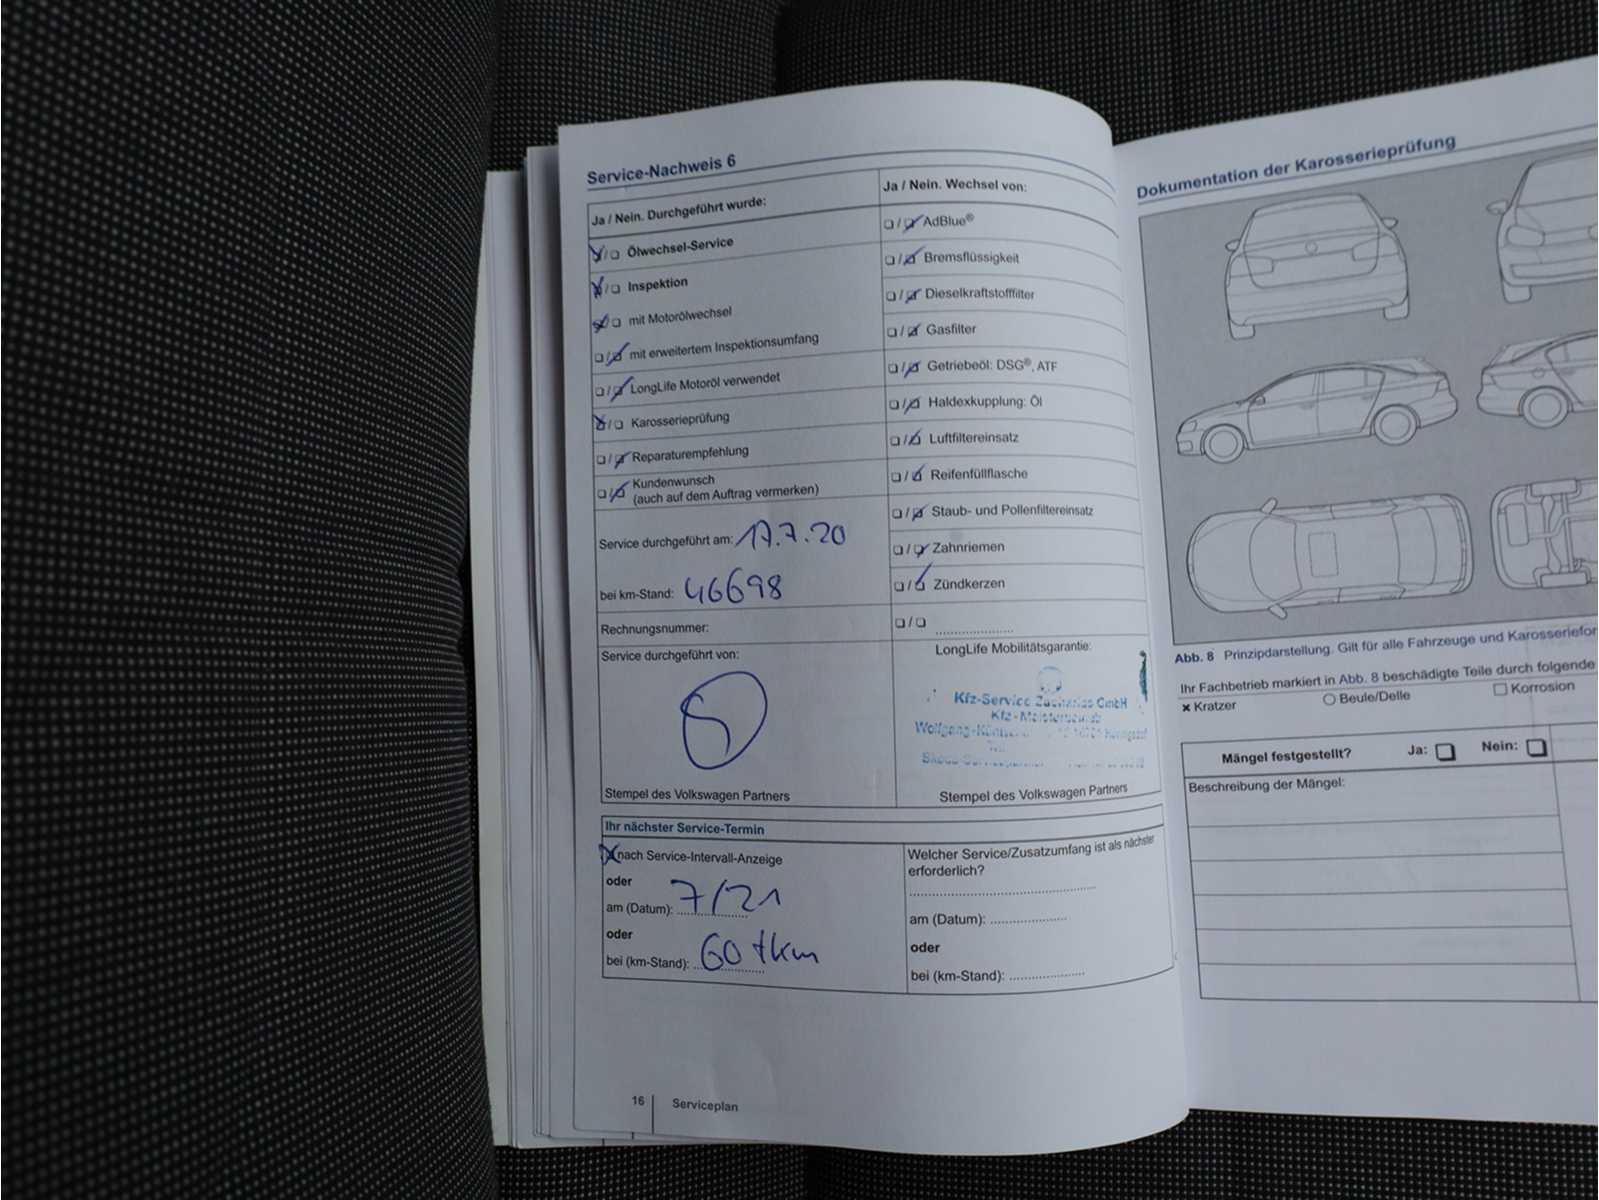 Service-Nachweis 6
Ja / Nein. Durchgeführt wurde:
Ölwechsel-Service
Inspektion
mit Motorölwechsel
mit erweitertem Inspektionsumfang
LongLife Motoröl verwendet
Karosserieprüfung
Reparaturempfehlung
Kundenwunsch
(auch auf dem Auftrag vermerken)
Service durchgeführt am: 17.7.20
bei km-Stand: 46698
Rechnungsnummer:
Service durchgeführt von:
Stempel des Volkswagen Partners
Ja / Nein. Wechsel von:
AdBlue®
Bremsflüssigkeit
Dieselkraftstofffilter
Gasfilter
Getriebeöl: DSG®, ATF
Haldexkupplung: Öl
Luftfiltereinsatz
Reifenfüllflasche
Staub- und Pollenfiltereinsatz
Zahnriemen
Zündkerzen
LongLife Mobilitätsgarantie:
Kfz-Service Zacharias GmbH
Kfz-Meisterbetrieb
Stempel des Volkswagen Partners
Ihr nächster Service-Termin
nach Service-Intervall-Anzeige
oder
am (Datum): 7/21
oder
bei (km-Stand): 60 tkm
Welcher Service/Zusatzumfang ist als nächster
erforderlich?
am (Datum):
oder
bei (km-Stand):
16 Serviceplan
Dokumentation der Karosserieprüfung
Abb. 8 Prinzipdarstellung. Gilt für alle Fahrzeuge und
Ihr Fachbetrieb markiert in Abb. 8 beschädigte Teile durch folgende
Kratzer Beule/Delle Korrosion
Mängel festgestellt? Ja: Nein:
Beschreibung der Mängel: